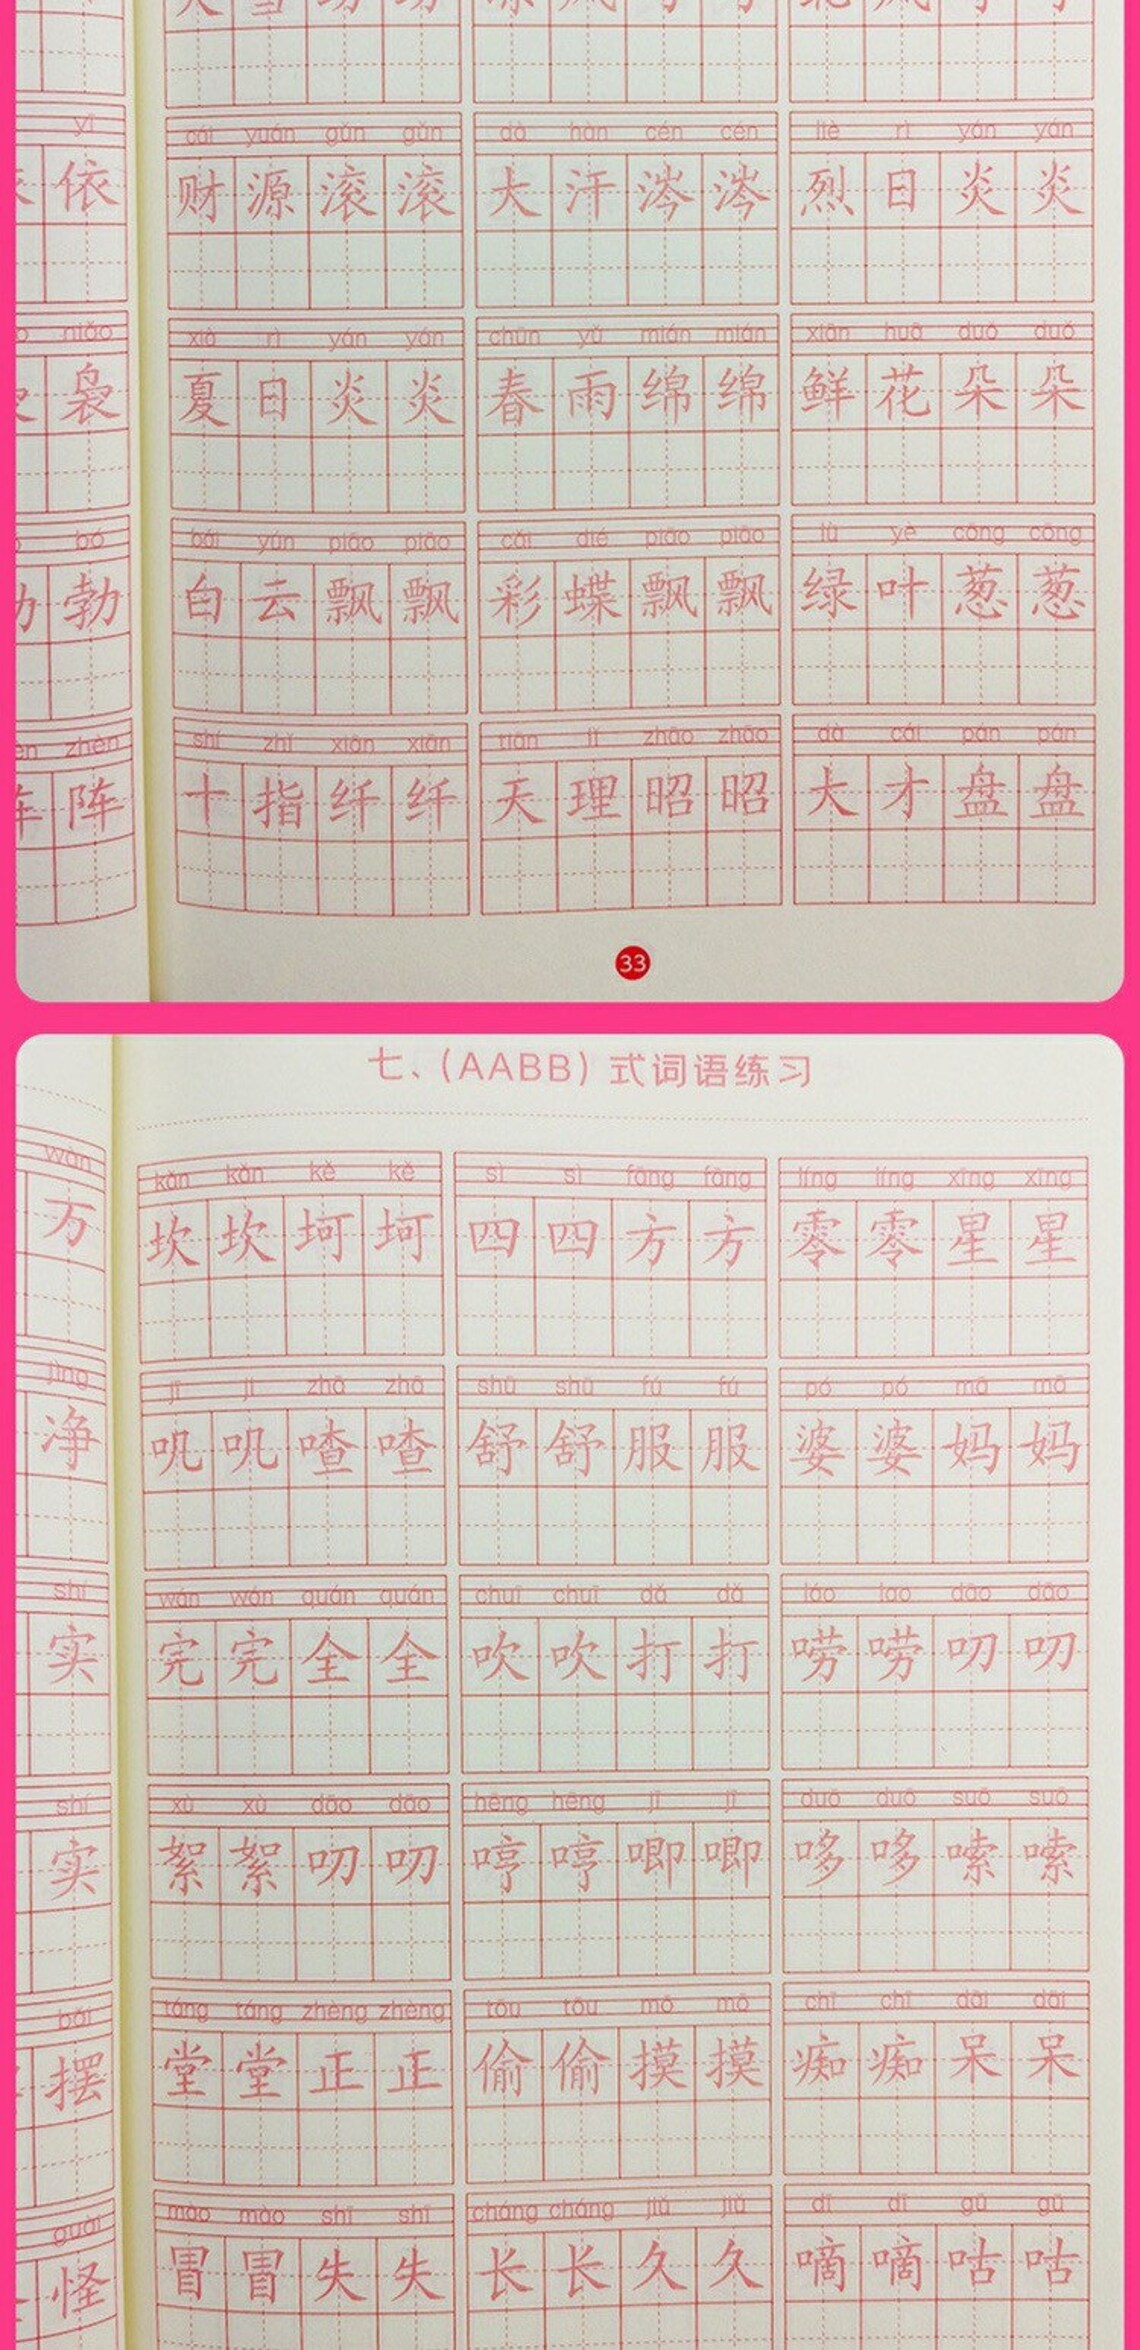 yī
cái yuán gǔn gǔn dà hàn cén cén liè rì yán yán
依 财源滚滚 大汗涔涔 烈日炎炎
niǎo xià rì yán yán chūn yǔ mián mián xiān huā duǒ duǒ
袅 夏日炎炎 春雨绵绵 鲜花朵朵
bó bái yún piāo piāo cǎi dié piāo piāo lǜ yè cōng cōng
勃 白云飘飘 彩蝶飘飘 绿叶葱葱
zhèn shí zhǐ xiān xiān tiān lǐ zhāo zhāo dà cái pán pán
阵 十指纤纤 天理昭昭 大才盘盘
33
七、(AABB) 式词语练习
wàn kǎn kǎn kě kě sì sì fāng fāng líng líng xīng xīng
万 坎坎坷坷 四四方方 零零星星
jìng jī jī zhā zhā shū shū fú fú pó pó mā mā
净 叽叽喳喳 舒舒服服 婆婆妈妈
shí wán wán quán quán chuī chuī dǎ dǎ láo lao dāo dāo
实 完完全全 吹吹打打 唠唠叨叨
shí xù xù dāo dāo hēng hēng jī jī duō duō suō suō
实 絮絮叨叨 哼哼唧唧 哆哆嗦嗦
bǎi táng táng zhèng zhèng tōu tōu mō mō chī chī dāi dāi
摆 堂堂正正 偷偷摸摸 痴痴呆呆
guài mào mào shī shī cháng cháng jiǔ jiǔ dī dī gū gū
怪 冒冒失失 长长久久 嘀嘀咕咕